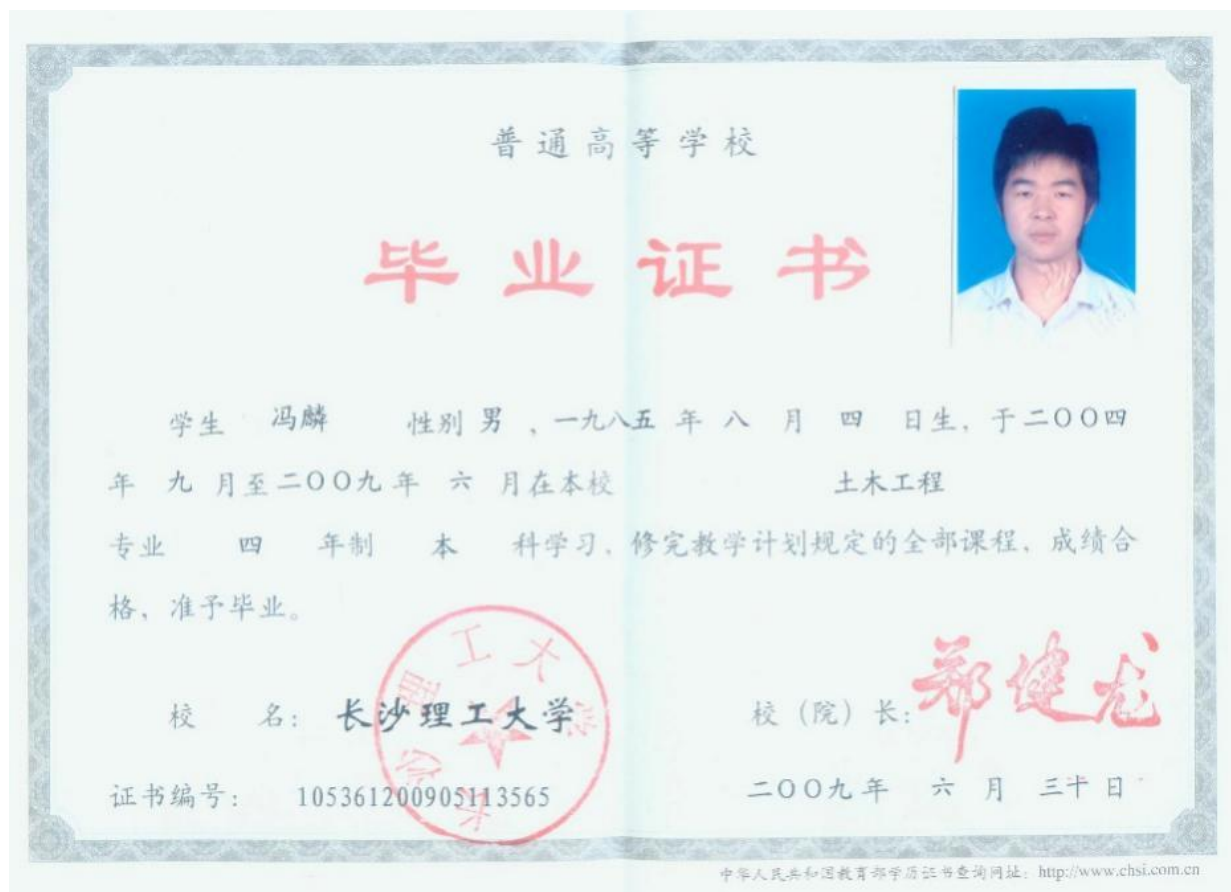 普通高等学校
毕业证书
学生 冯麟 性别 男 ，一九八五 年 八 月 四 日生，于二〇〇四
年 九 月至二〇〇九年 六 月在本校 土木工程
专业 四 年制 本 科学习，修完教学计划规定的全部课程，成绩合
格，准予毕业。
长沙理工大学
校 名： 长沙理工大学
校（院）长： 郑健龙
证书编号： 105361200905113565
二〇〇九年 六 月 三十 日
中华人民共和国教育部学历证书查询网址：http://www.chsi.com.cn